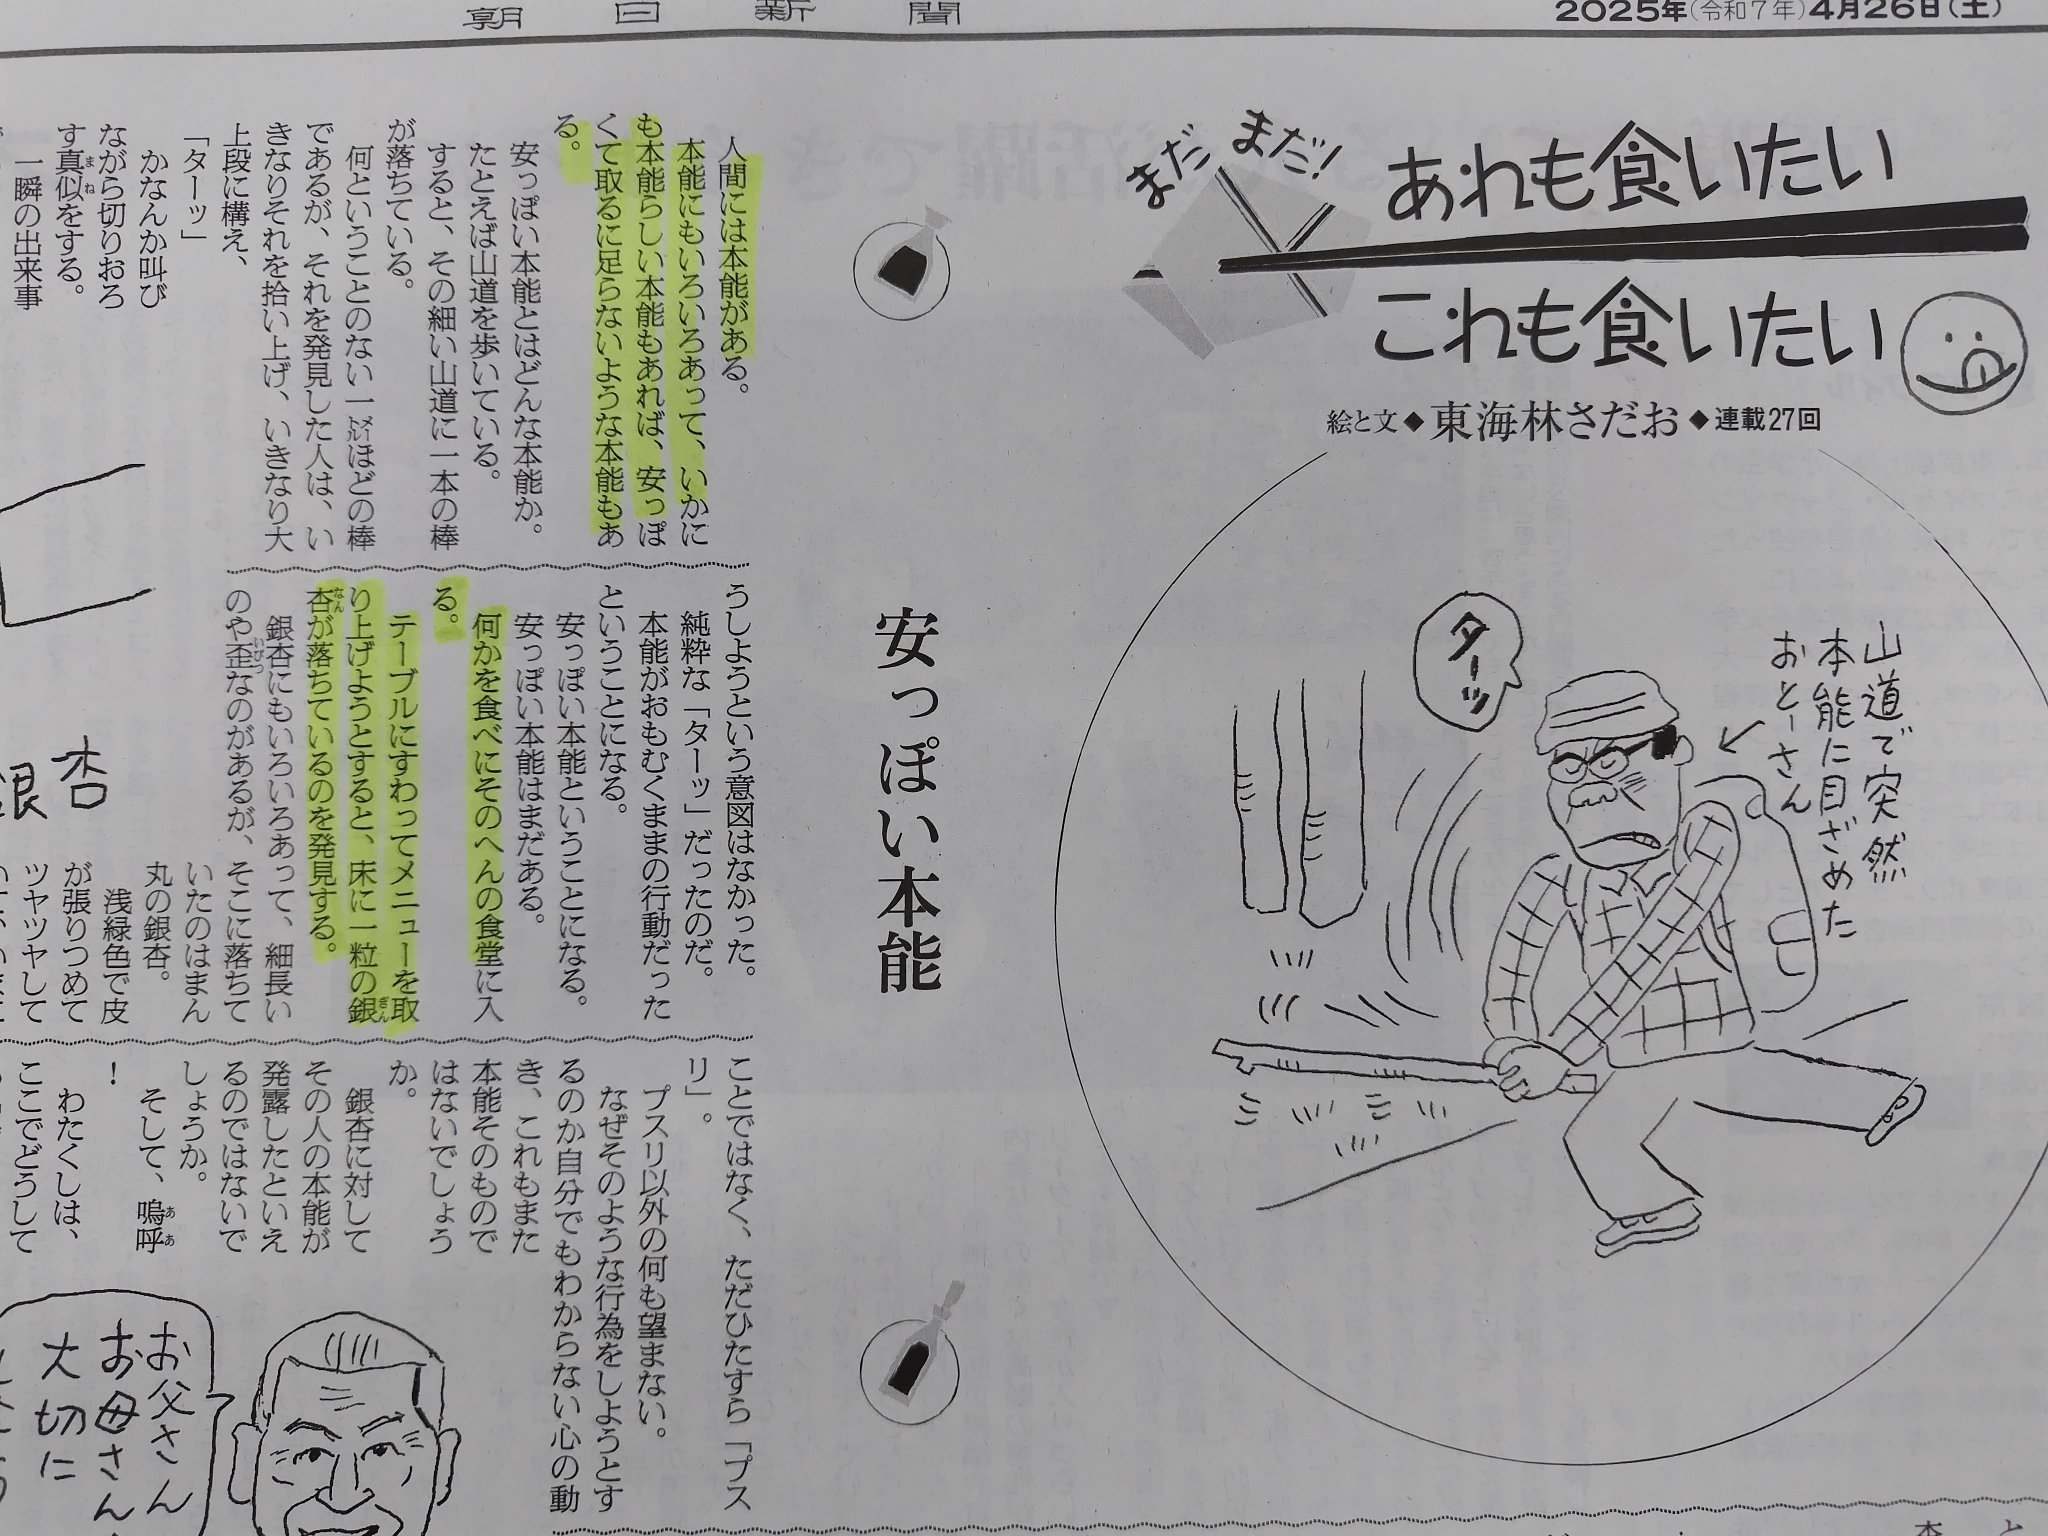 朝日新聞
2025年(令和7年)4月26日(土)
まだまだ!
あれも食いたい
これも食いたい
絵と文◆東海林さだお◆連載27回
山道で突然
本能に目ざめた
おとーさん
ターッ
安っぽい本能
人間には本能がある。
本能にもいろいろあって、いかに
も本能らしい本能もあれば、安っぽ
くて取るに足らないような本能もあ
る。
安っぽい本能とはどんな本能か。
たとえば山道を歩いている。
すると、その細い山道に一本の棒
が落ちている。
何ということのない一㍍ほどの棒
であるが、それを発見した人は、い
きなりそれを拾い上げ、いきなり大
上段に構え、
「ターッ」
かなんか叫び
ながら切りおろ
す真似をする。
一瞬の出来事
うしようという意図はなかった。
純粋な「ターッ」だったのだ。
本能がおもむくままの行動だった
ということになる。
安っぽい本能ということになる。
安っぽい本能はまだある。
何かを食べにそのへんの食堂に入
る。
テーブルにすわってメニューを取
り上げようとすると、床に一粒の銀
杏が落ちているのを発見する。
銀杏にもいろいろあって、細長い
のや歪なのがあるが、
そこに落ちて
いたのはまん
丸の銀杏。
浅緑色で皮
が張りつめて
ツヤツヤして
ことではなく、ただひたすら「プス
リ」。
プスリ以外の何も望まない。
なぜそのような行為をしようとす
るのか自分でもわからない心の動
き、これもまた
本能そのもので
はないでしょう
か。
銀杏に対して
その人の本能が
発露したといえ
るのではないで
しょうか。
そして、嗚呼
!
わたくしは、
ここでどうして
銀杏
お父さん
お母さん
大切に